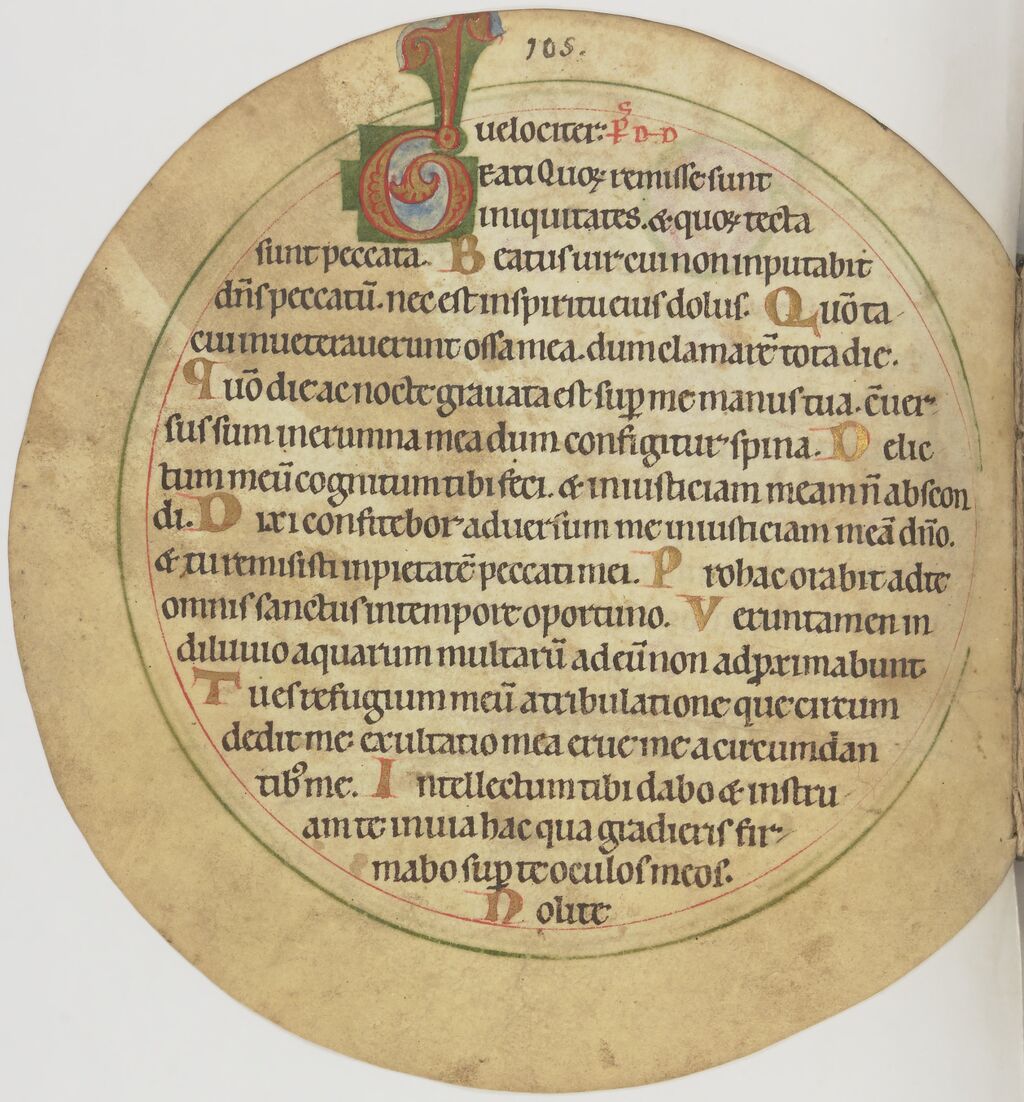 105.
uelociter: ps DD
BEati Quoꝝ remisse sunt
iniquitates. & quoꝝ tecta
sunt peccata. Beatus uir cui non inputabit
dn̄s peccatū. nec est in spiritu eius dolus. Quō ta
cui inueterauerunt ossa mea. dum clamarē tota die.
Quō die ac nocte grauata est suꝑ me manus tua. c̄uer
sus sum in erumna mea dum configitur spina. Delic
tum meū cognitum tibi feci. & iniusticiam meam n̄ abscon
di. Dixi confitebor aduersum me iniusticiam meā dn̄o.
& tu remisisti inpietatē peccati mei. Pro hac orabit ad te
omnis sanctus in tempore oportuno. Veruntamen in
diluuio aquarum multarū ad eū non adꝓximabunt
Tu es refugium meū a tribulatione que circum
dedit me exultatio mea erue me a circumdan
tibꝰ me. Intellectum tibi dabo & instru
am te in uia hac qua gradieris fir
mabo suꝑ te oculos meos.
Nolite